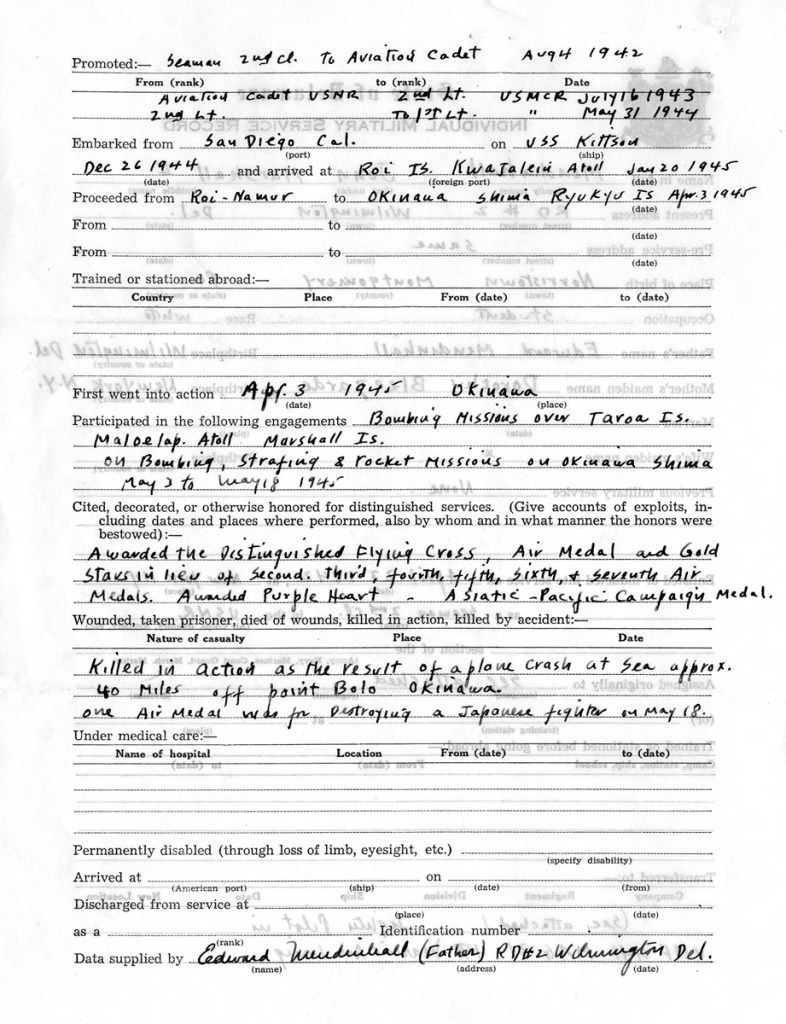 Promoted:— Seaman 2nd Cl. To Aviation Cadet Aug 4 1942
From (rank) to (rank) Date
Aviation Cadet USNR 2nd Lt. USMCR July 16 1943
2nd Lt. To 1st Lt. " May 31 1944
Embarked from San Diego Cal. on USS Kittson
(port) (ship)
Dec 26 1944 and arrived at Roi Is. Kwajalein Atoll Jan 20 1945
(date) (foreign port) (date)
Proceeded from Roi-Namur to Okinawa Shima Ryukyu Is Apr. 3 1945
(date)
From to
(date)
From to
(date)
Trained or stationed abroad:—
Country Place From (date) to (date)
First went into action Apr. 3 1945 Okinawa
(date) (place)
Participated in the following engagements Bombing Missions over Taroa Is.
Maloelap. Atoll Marshall Is.
on Bombing, Strafing & rocket Missions on Okinawa Shima
May 3 to May 18 1945
Cited, decorated, or otherwise honored for distinguished services. (Give accounts of exploits, in-
cluding dates and places where performed, also by whom and in what manner the honors were
bestowed):—
Awarded the Distinguished Flying Cross, Air Medal and Gold
Stars in lieu of Second. Third, fourth, fifth, Sixth, & Seventh Air
Medals. Awarded Purple Heart - Asiatic-Pacific Campaign Medal.
Wounded, taken prisoner, died of wounds, killed in action, killed by accident:—
Nature of casualty Place Date
Killed in action as the result of a plane crash at Sea approx.
40 Miles off point Bolo Okinawa.
one Air Medal was for Destroying a Japanese fighter on May 18.
Under medical care:—
Name of hospital Location From (date) to (date)
Permanently disabled (through loss of limb, eyesight, etc.)
(specify disability)
Arrived at on
(American port) (ship) (date) (from)
Discharged from service at
(place) (date)
as a Identification number
(rank)
Data supplied by Edward Mendenhall (Father) RD#2 Wilmington Del.
(name) (address) (date)